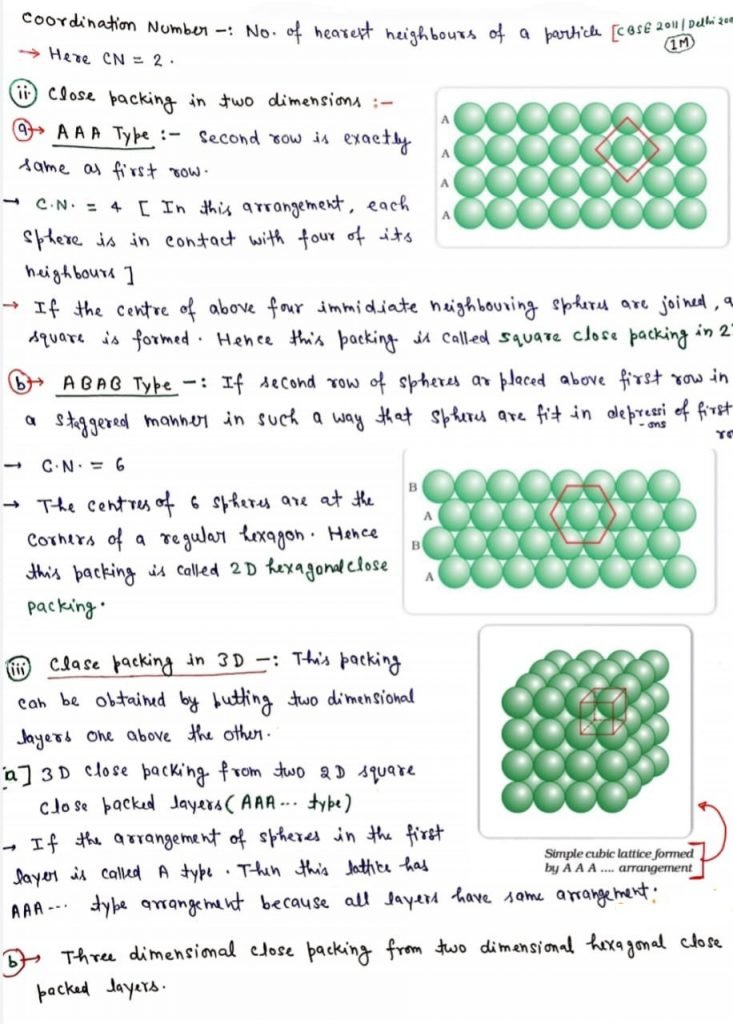 Coordination Number -: No. of nearest neighbours of a particle [CBSE 2011 / Delhi
(1M)
→ Here CN = 2.
(ii) Close packing in two dimensions :-
(a)→ AAA Type :- Second row is exactly
same as first row.
→ C.N. = 4 [ In this arrangement, each
Sphere is in contact with four of its
neighbours ]
A
A
A
A
→ If the centre of above four immidiate neighbouring spheres are joined, a
square is formed. Hence this packing is called square close packing in 2
(b)→ ABAB Type -: If second row of spheres ar placed above first row in
a staggered manner in such a way that spheres are fit in depressi of first
-ons
→ C.N. = 6
→ The centres of 6 spheres are at the
corners of a regular hexagon. Hence
this packing is called 2D hexagonal close
packing.
B
A
B
A
(iii) Close packing in 3D -: This packing
can be obtained by putting two dimensional
layers one above the other.
[a] 3D close packing from two 2D square
close packed layers (AAA... type)
→ If the arrangement of spheres in the first
layer is called A type. Then this lattice has
AAA... type arrangement because all layers have same arrangement.
Simple cubic lattice formed
by A A A .... arrangement
(b)→ Three dimensional close packing from two dimensional hexagonal close
packed layers.